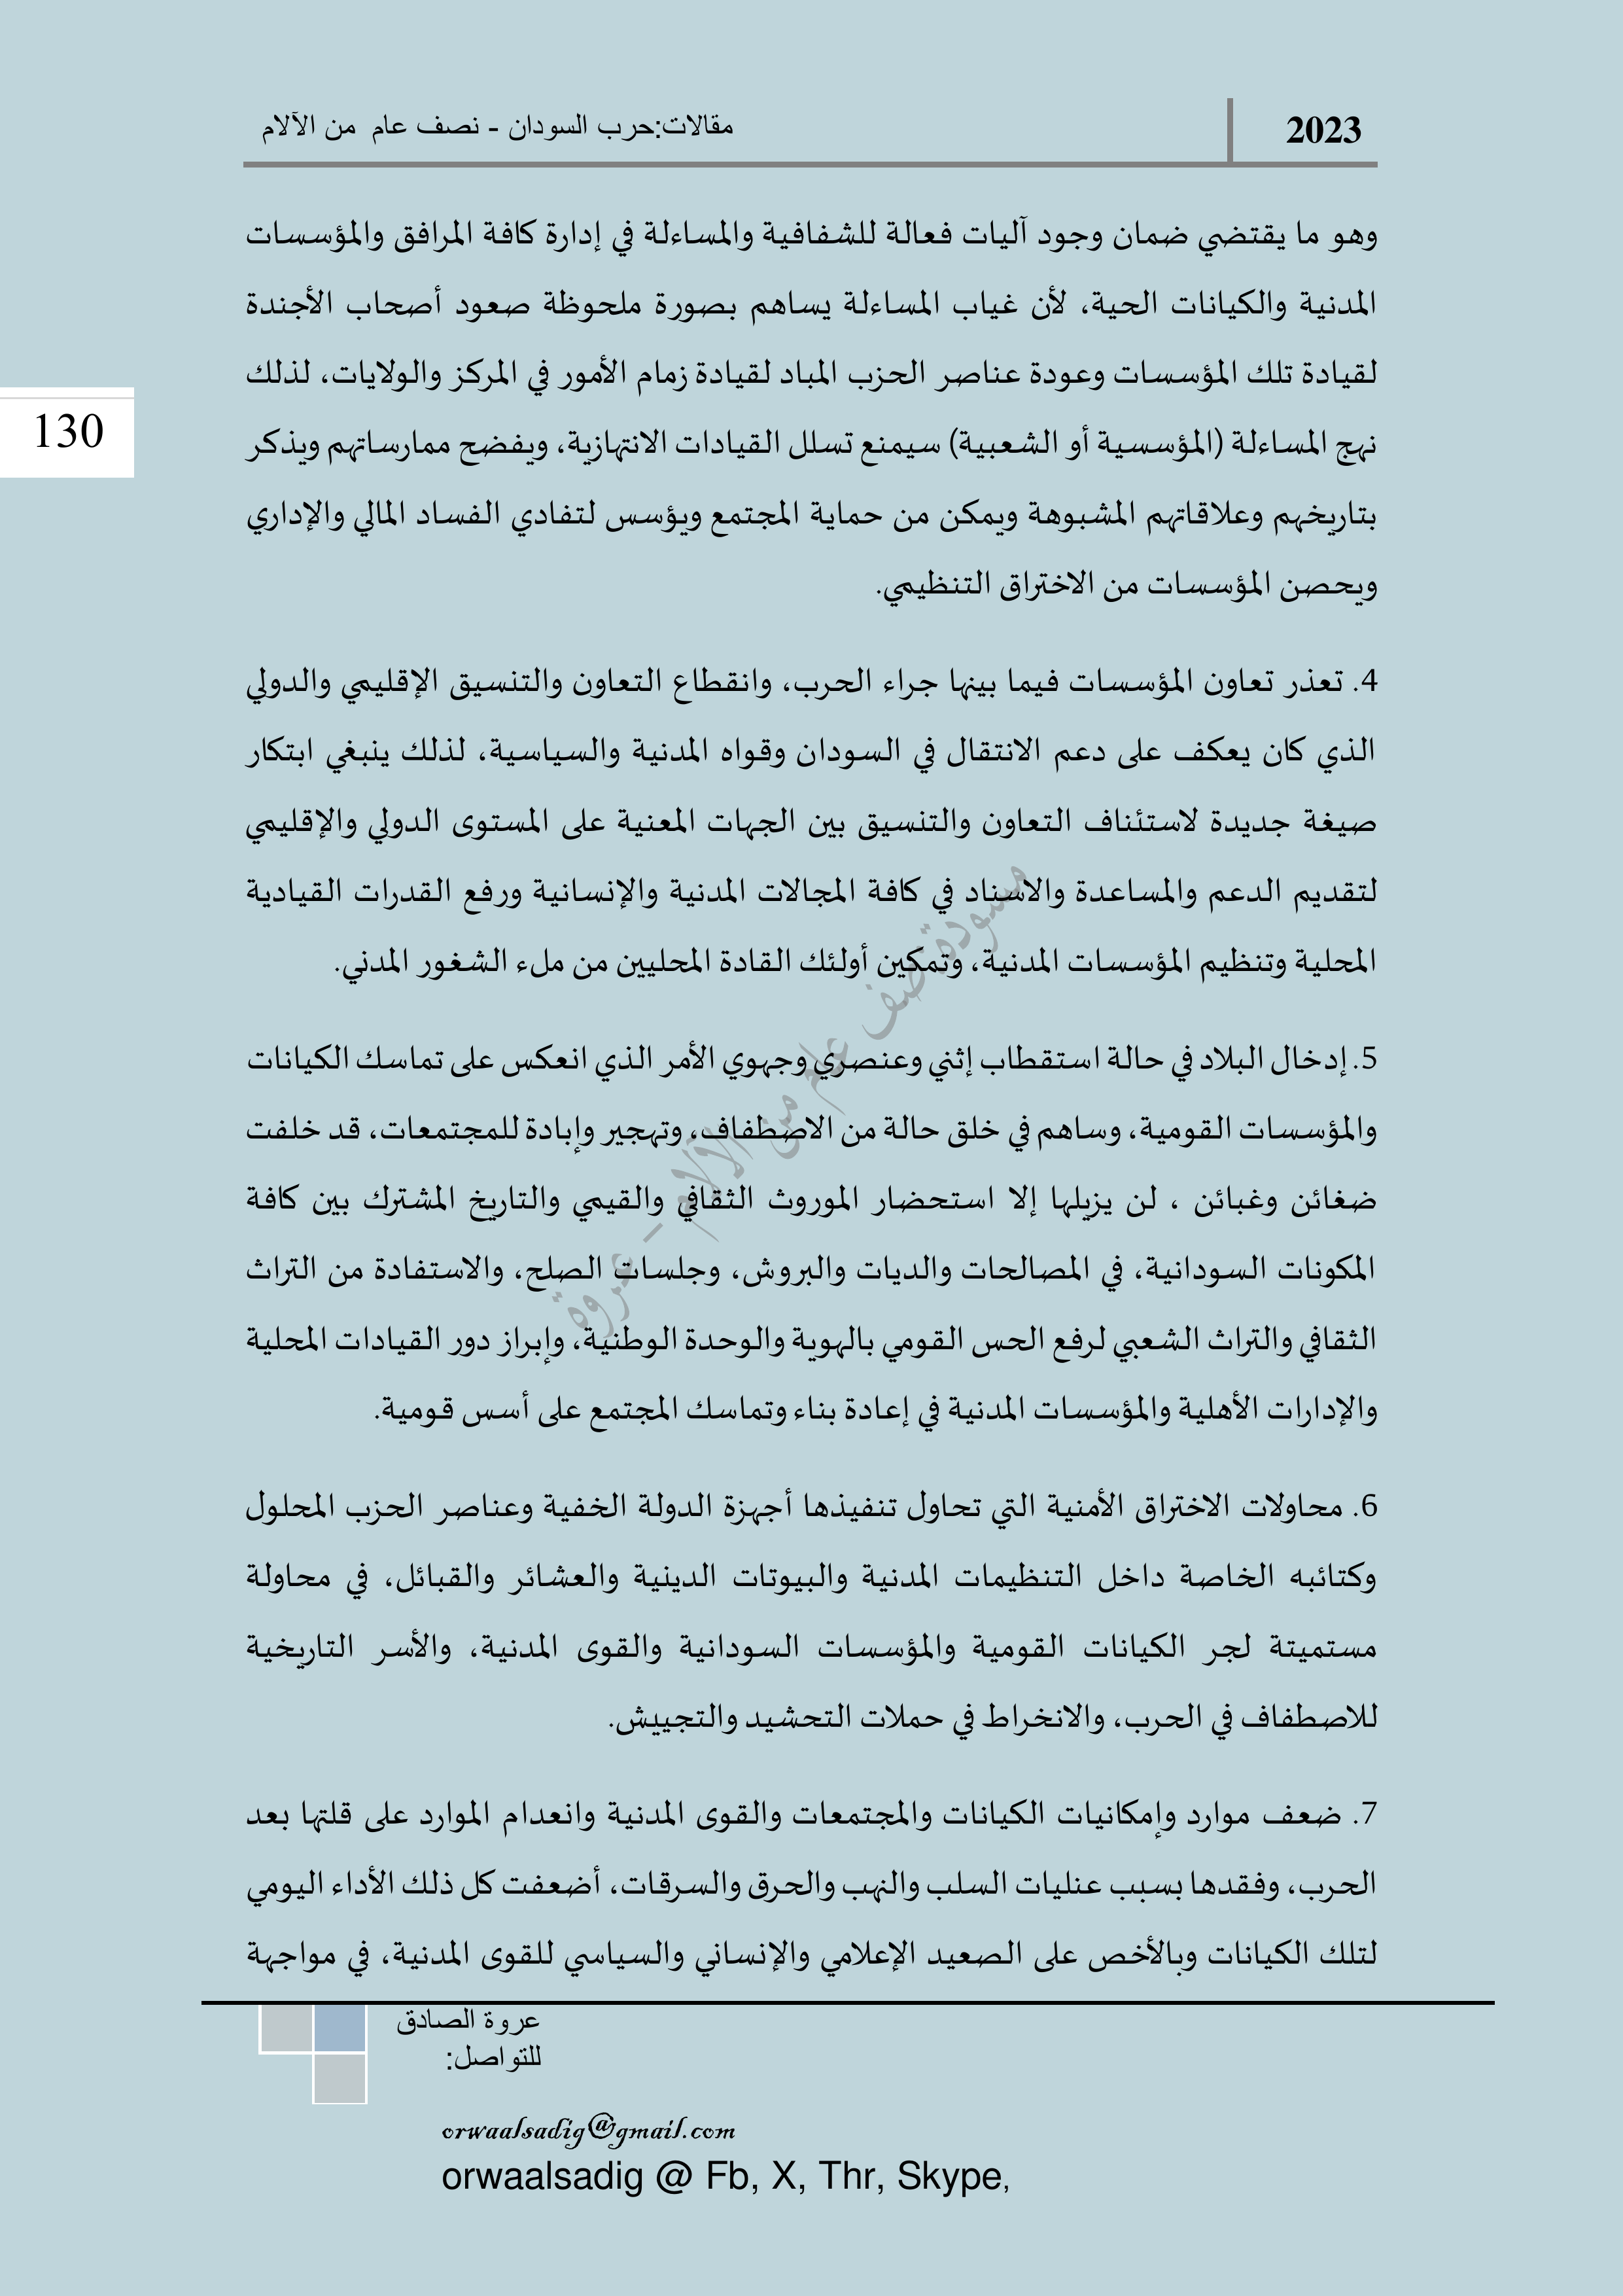 2023
مقالات:حرب السودان - نصف عام من الآلام
وهو ما يقتضي ضمان وجود آليات فعالة للشفافية والمساءلة في إدارة كافة المرافق والمؤسسات
المدنية والكيانات الحية، لأن غياب المساءلة يساهم بصورة ملحوظة صعود أصحاب الأجندة
لقيادة تلك المؤسسات وعودة عناصر الحزب المباد لقيادة زمام الأمور في المركز والولايات، لذلك
130
نهج المساءلة (المؤسسية أو الشعبية) سيمنع تسلل القيادات الانتهازية، ويفضح ممارساتهم ويذكر
بتاريخهم وعلاقاتهم المشبوهة ويمكن من حماية المجتمع ويؤسس لتفادي الفساد المالي والإداري
ويحصن المؤسسات من الاختراق التنظيمي.
4. تعذر تعاون المؤسسات فيما بينها جراء الحرب، وانقطاع التعاون والتنسيق الإقليمي والدولي
الذي كان يعكف على دعم الانتقال في السودان وقواه المدنية والسياسية، لذلك ينبغي ابتكار
صيغة جديدة لاستئناف التعاون والتنسيق بين الجهات المعنية على المستوى الدولي والإقليمي
لتقديم الدعم والمساعدة والاسناد في كافة المجالات المدنية والإنسانية ورفع القدرات القيادية
المحلية وتنظيم المؤسسات المدنية، وتمكين أولئك القادة المحليين من ملء الشغور المدني.
مسودة نصف عام من الآلام - عروة
5. إدخال البلاد في حالة استقطاب إثني وعنصري وجهوي الأمر الذي انعكس على تماسك الكيانات
والمؤسسات القومية، وساهم في خلق حالة من الاصطفاف، وتهجير وإبادة للمجتمعات، قد خلفت
ضغائن وغبائن ، لن يزيلها إلا استحضار الموروث الثقافي والقيمي والتاريخ المشترك بين كافة
المكونات السودانية، في المصالحات والديات والبروش، وجلسات الصلح، والاستفادة من التراث
الثقافي والتراث الشعبي لرفع الحس القومي بالهوية والوحدة الوطنية، وإبراز دور القيادات المحلية
والإدارات الأهلية والمؤسسات المدنية في إعادة بناء وتماسك المجتمع على أسس قومية.
6. محاولات الاختراق الأمنية التي تحاول تنفيذها أجهزة الدولة الخفية وعناصر الحزب المحلول
وكتائبه الخاصة داخل التنظيمات المدنية والبيوتات الدينية والعشائر والقبائل، في محاولة
مستميتة لجر الكيانات القومية والمؤسسات السودانية والقوى المدنية، والأسر التاريخية
للاصطفاف في الحرب، والانخراط في حملات التحشيد والتجييش.
7. ضعف موارد وإمكانيات الكيانات والمجتمعات والقوى المدنية وانعدام الموارد على قلتها بعد
الحرب، وفقدها بسبب عنليات السلب والنهب والحرق والسرقات، أضعفت كل ذلك الأداء اليومي
لتلك الكيانات وبالأخص على الصعيد الإعلامي والإنساني والسياسي للقوى المدنية، في مواجهة
عروة الصادق
للتواصل:
orwaalsadig@gmail.com
orwaalsadig @ Fb, X, Thr, Skype,